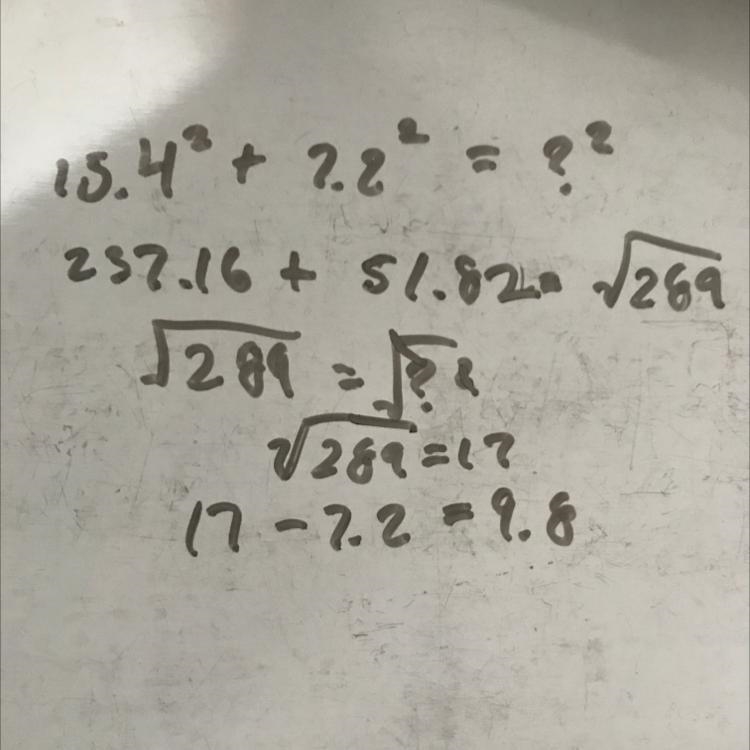 15.4² + 7.2² = ?²
237.16 + 51.82 = √289
√289 = √?²
√289 = 17
17 - 7.2 = 9.8